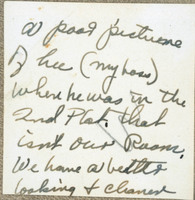 a poor picture
of Lee (my boss)
when he was in the
2nd Plat. That
isn't our Room.
We have a better
looking & cleaner